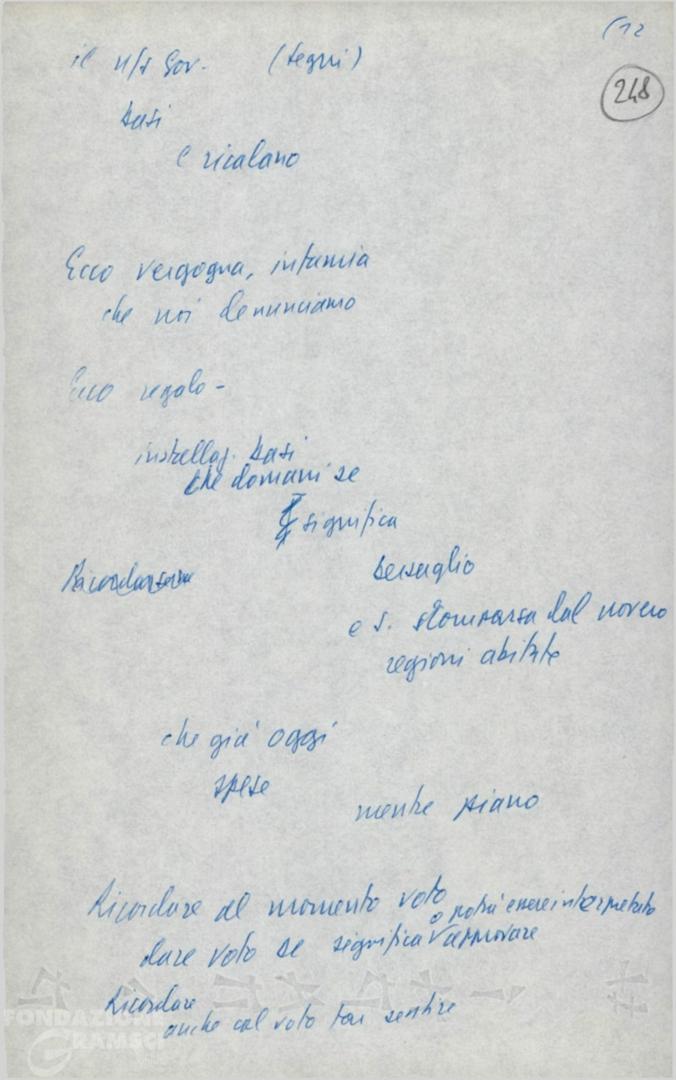 (12
248
il n/s Gov. (segni)
basi
e ricalano
Ecco vergogna, infamia
che noi denunciamo
Ecco regalo -
installaz. basi
che domani se
significa
bersaglio
e s. scomparsa dal novero
regioni abitate
che già oggi
spese
mentre piano
Ricordare al momento voto
o potrà essere interpretato
dare voto se significa approvare
Ricordare
anche col voto far sentire
FONDAZIONE
GRAMSCI